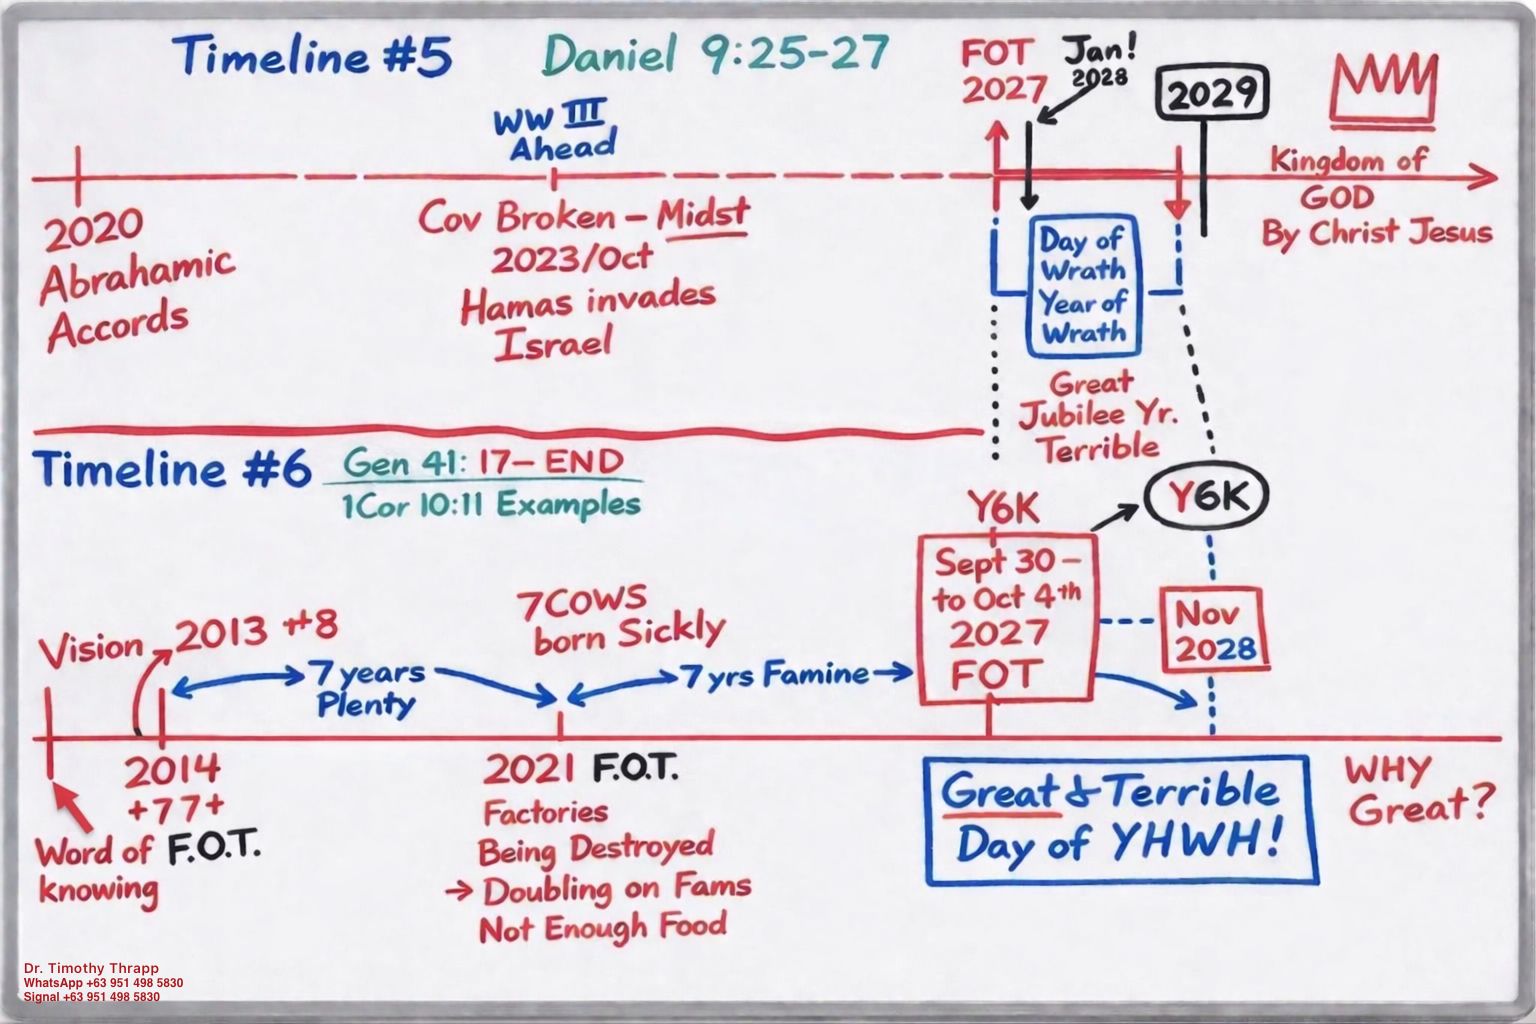 Timeline #5
Daniel 9:25-27
FOT
2027
Jan!
2028
2029
WW III
Ahead
2020
Abrahamic
Accords
Cov Broken - Midst
2023/Oct
Hamas invades
Israel
Day of
Wrath
Year of
Wrath
Kingdom of
GOD
By Christ Jesus
Great
Jubilee Yr.
Terrible
Timeline #6
Gen 41: 17- END
1Cor 10:11 Examples
Y6K
Y6K
Sept 30 -
to Oct 4th
2027
FOT
Nov
2028
Vision
2013 +8
7 years
Plenty
7COWS
born Sickly
7 yrs Famine
2014
+77+
Word of F.O.T.
knowing
2021 F.O.T.
Factories
Being Destroyed
→ Doubling on Fams
Not Enough Food
Great & Terrible
Day of YHWH!
WHY
Great?
Dr. Timothy Thrapp
WhatsApp +63 951 498 5830
Signal +63 951 498 5830